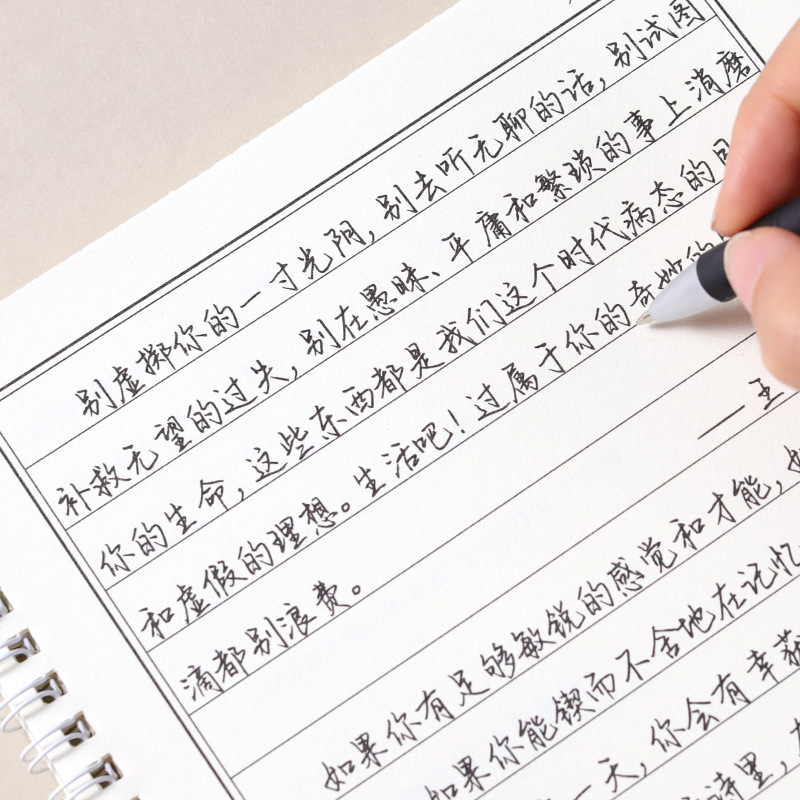 别虚掷你的一寸光阴，别去听无聊的话，别试图
补救无望的过失，别在愚昧、平庸和繁琐的事上消磨
你的生命，这些东西都是我们这个时代病态的目
和虚假的理想。生活吧！过属于你的奇妙的
滴都别浪费。
——王
如果你有足够敏锐的感觉和才能，
如果你能锲而不舍地在记忆
一天，你会有幸获
诗里，